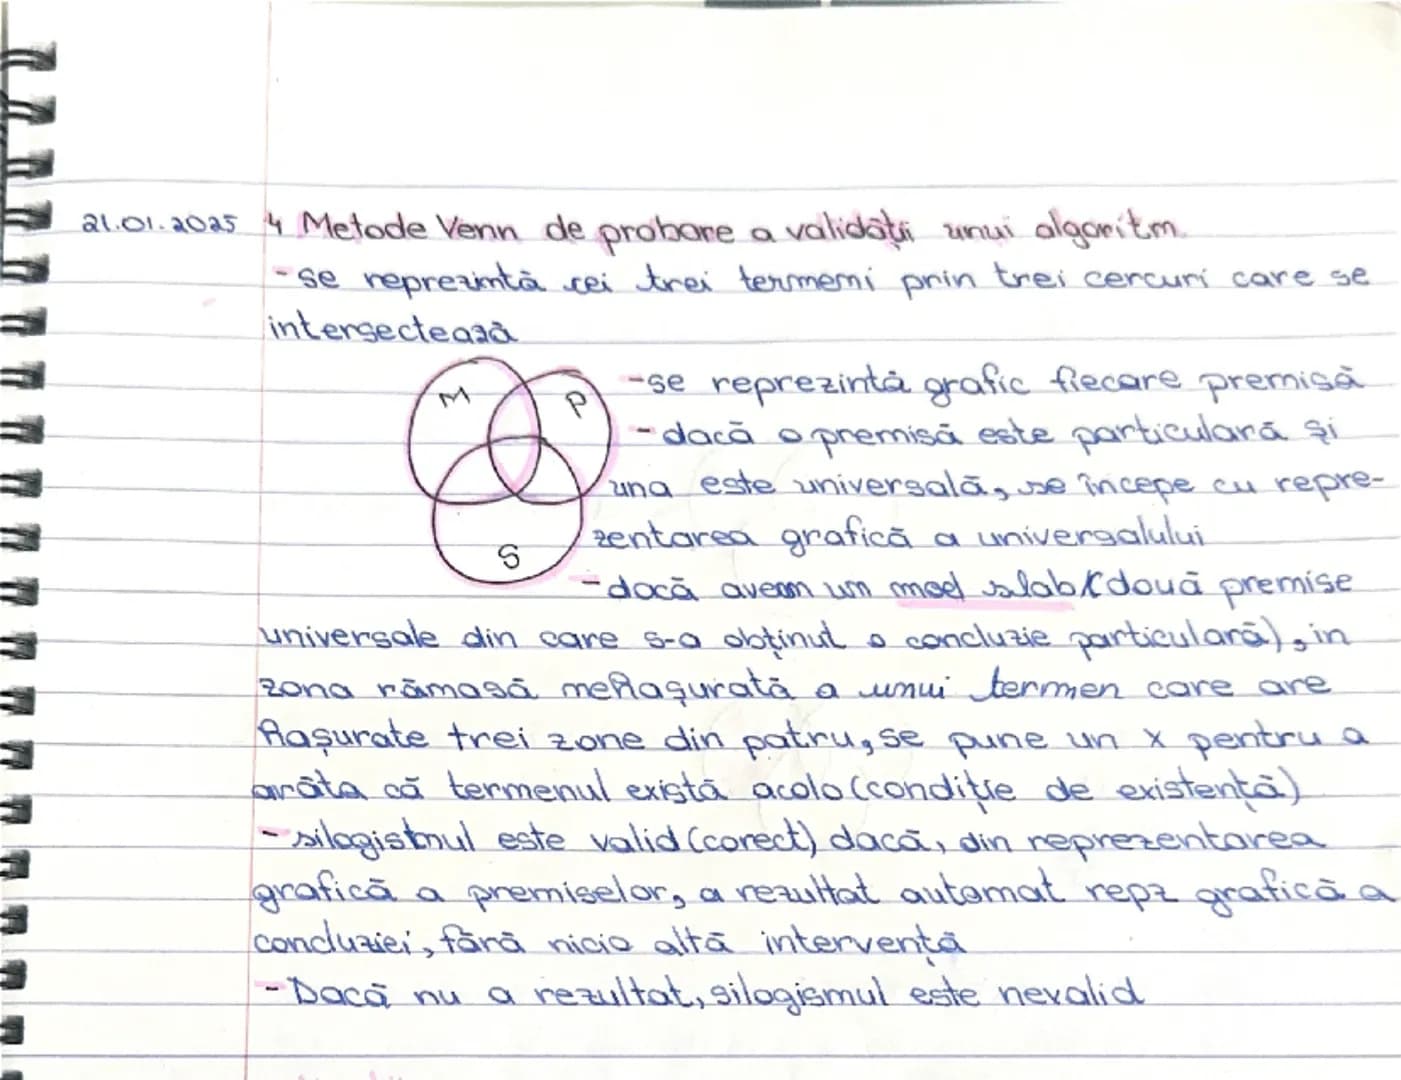 21.01.2025 4 Metode Venn de probare a validății unui algoritm.
-se reprezintă cei trei termeni prin trei cercuri care se
intersectează
M
P
S
-se reprezintă grafic fiecare premisă
-dacă o premisă este particulară și
una este universală, se începe cu repre-
zentarea grafică a universalului
-dacă avem un mod slab (două premise
universale din care s-a obținut o concluzie particulară), in
zona rămasă nehașurată a unui termen care are
hașurate trei zone din patru, se pune un x pentru a
arăta că termenul există acolo (condiție de existență)
-silogismul este valid (corect) dacă, din reprezentarea
grafică a premiselor, a rezultat automat repz grafică a
concluziei, fără nicio altă intervență
-Dacă nu a rezultat, silogismul este nevalid